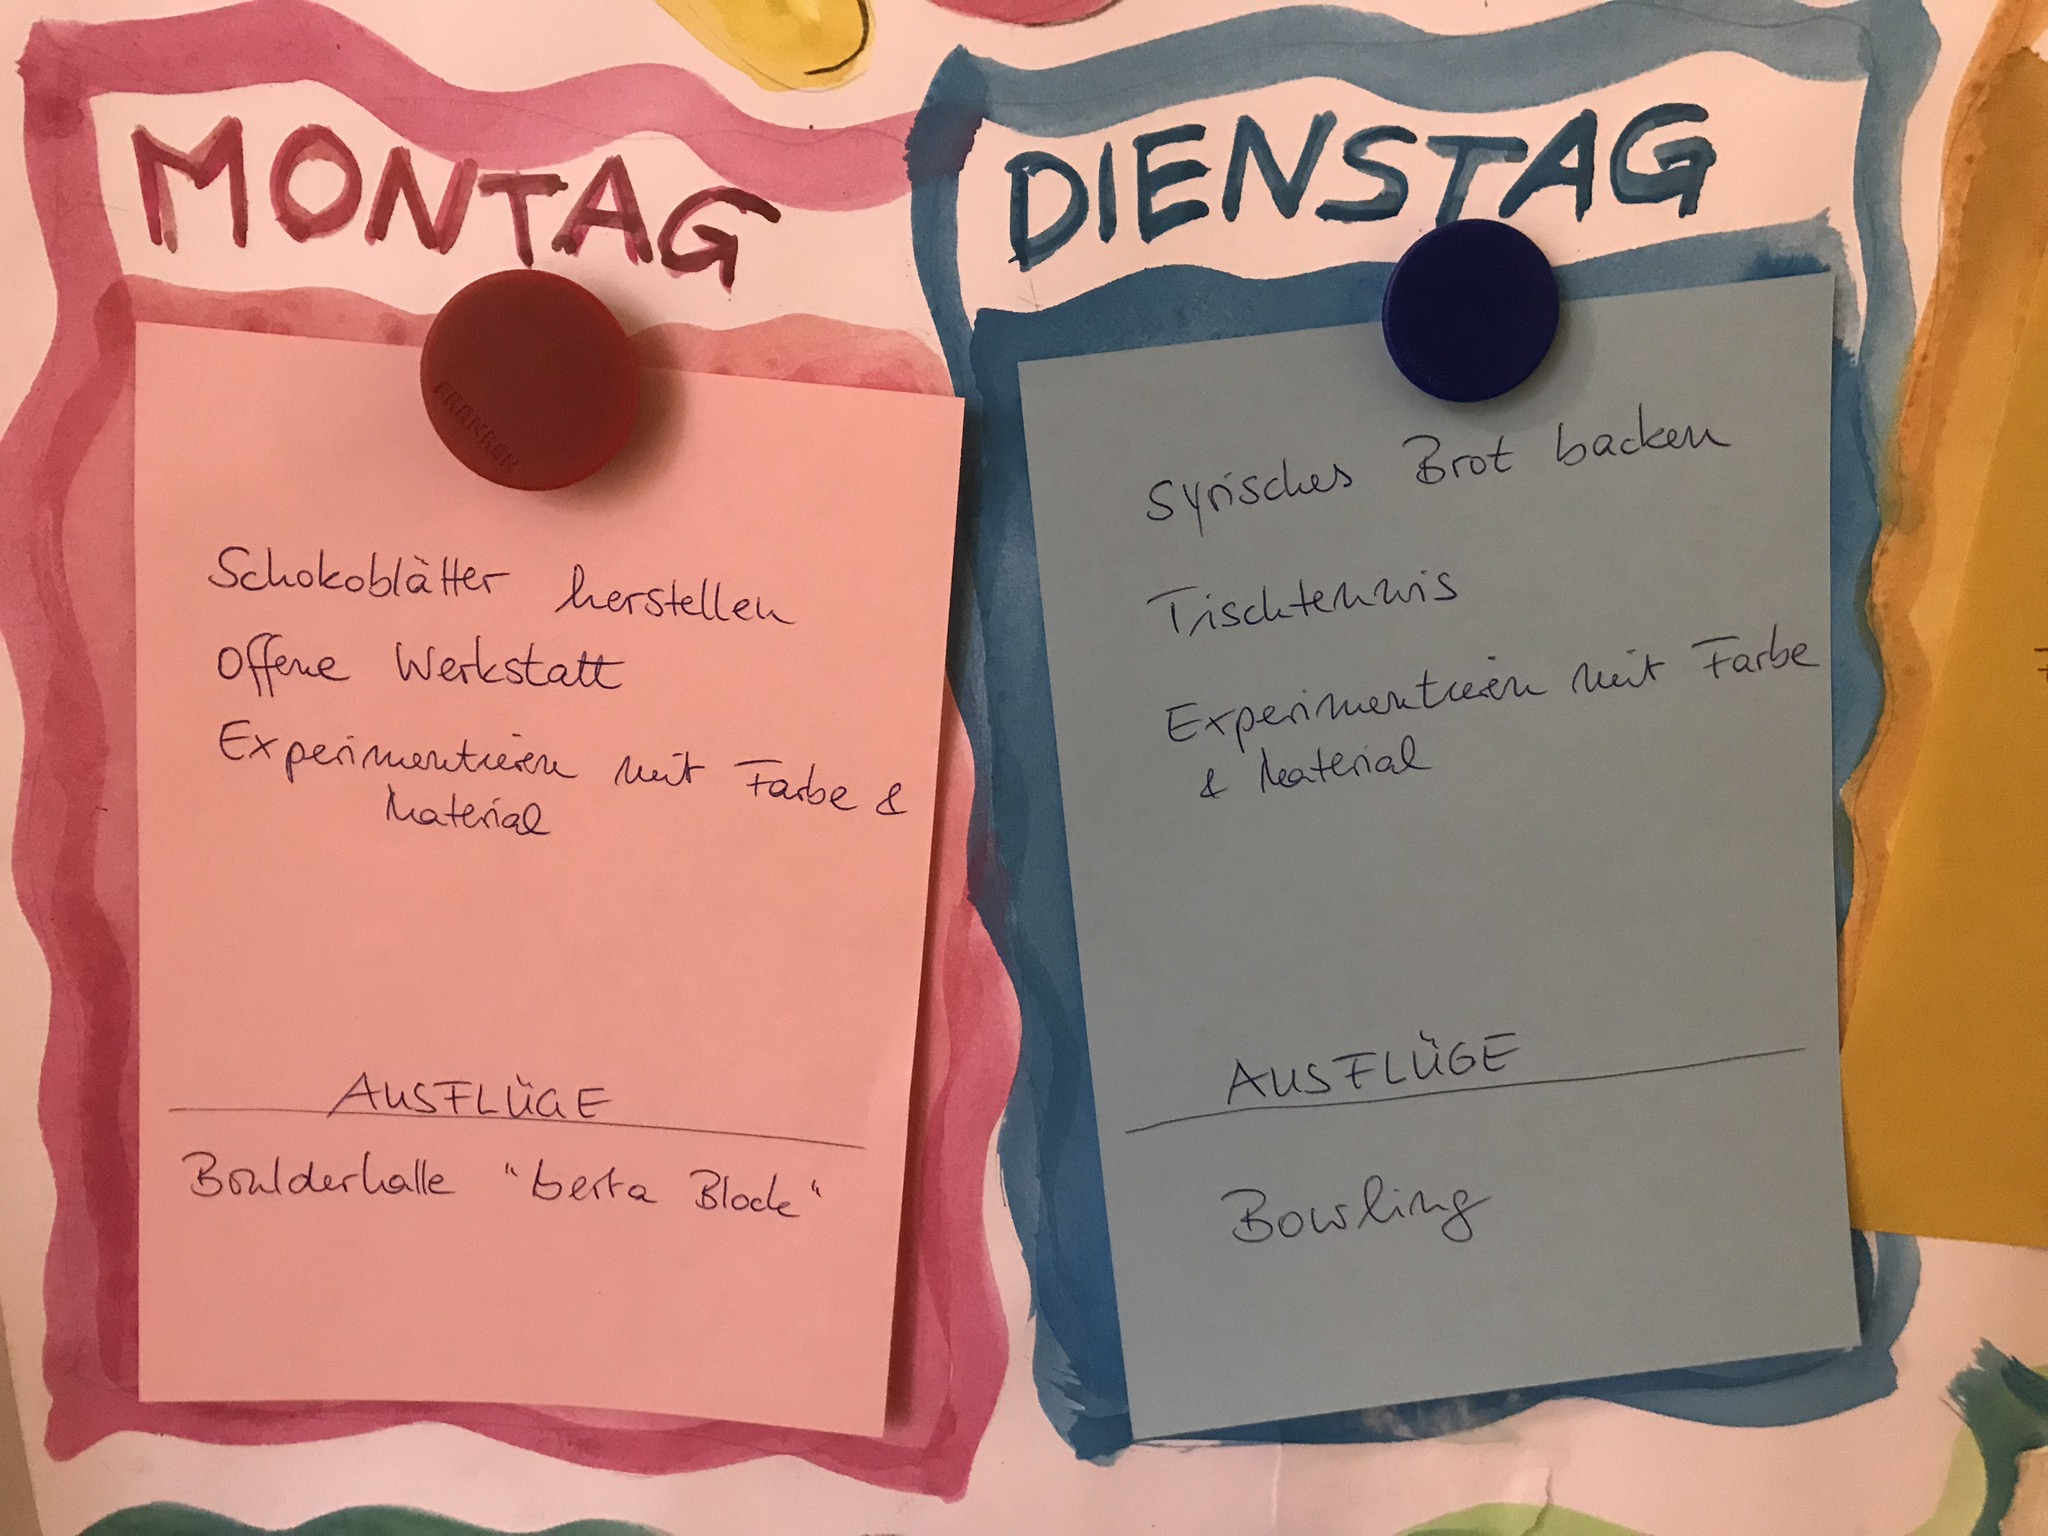 MONTAG
FRANKEN
Schokoblätter herstellen
Offene Werkstatt
Experimentieren mit Farbe &
Material
AUSFLÜGE
Boulderhalle "berta Block"
DIENSTAG
Syrisches Brot backen
Tischtennis
Experimentieren mit Farbe
& Material
AUSFLÜGE
Bowling